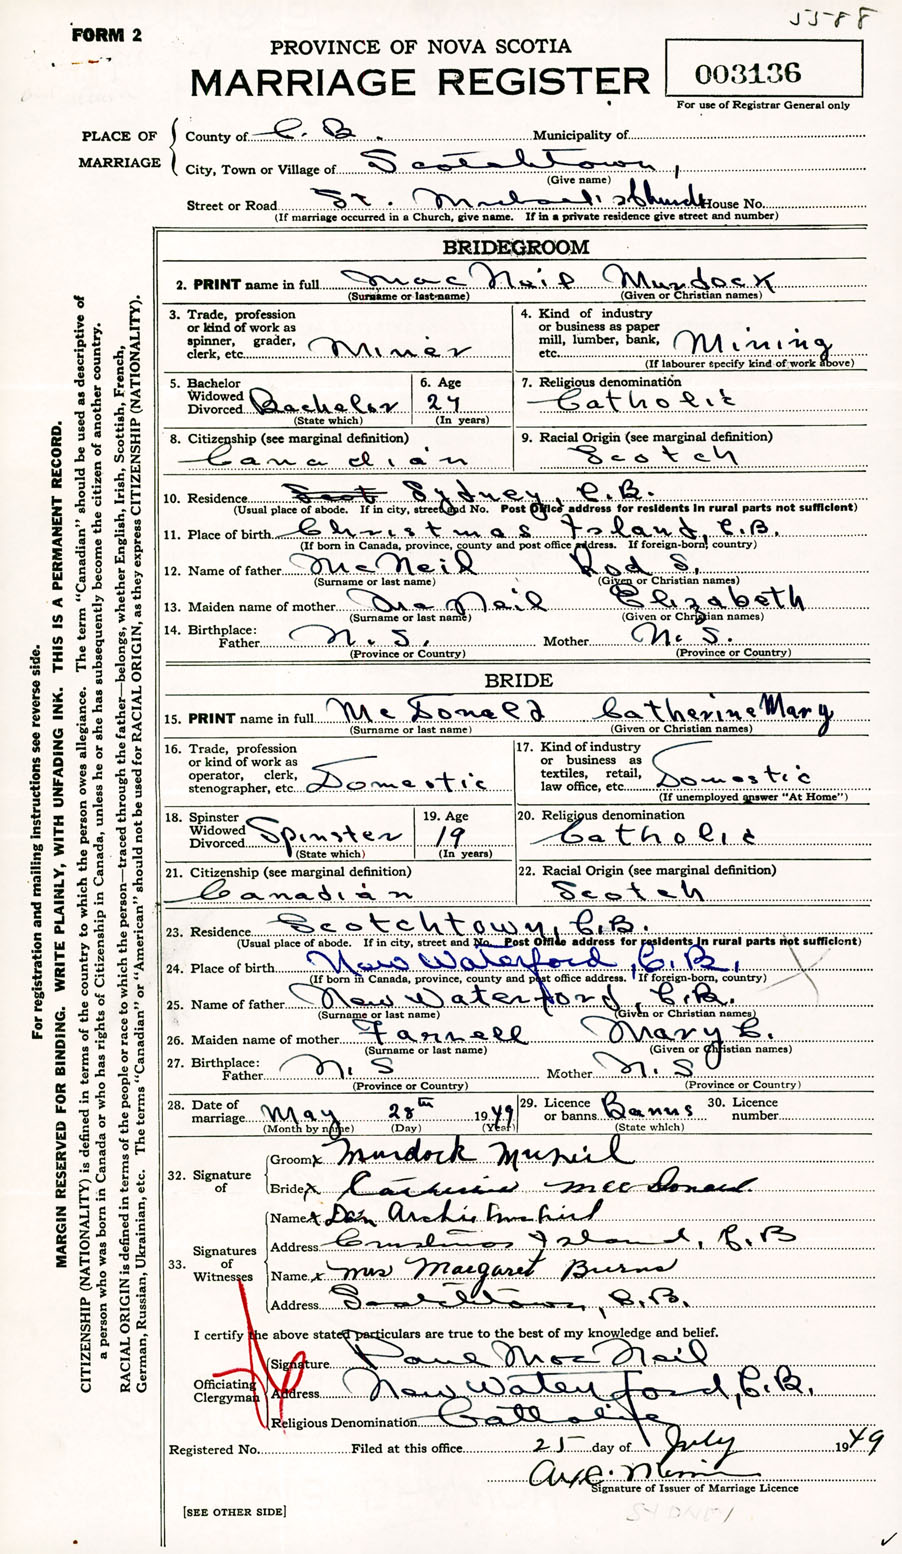 5588
FORM 2
PROVINCE OF NOVA SCOTIA
MARRIAGE REGISTER
003136
For use of Registrar General only
PLACE OF MARRIAGE
County of C. B. Municipality of
City, Town or Village of Scotchtown,
(Give name)
Street or Road St. Michael's Church House No.
(If marriage occurred in a Church, give name. If in a private residence give street and number)
BRIDEGROOM
2. PRINT name in full MacNeil Murdock
(Surname or last name) (Given or Christian names)
3. Trade, profession or kind of work as spinner, grader, clerk, etc. Miner
4. Kind of industry or business as paper mill, lumber, bank, etc. Mining
(If labourer specify kind of work above)
5. Bachelor Widowed Divorced Bachelor
(State which)
6. Age 27
(In years)
7. Religious denomination Catholic
8. Citizenship (see marginal definition) Canadian
9. Racial Origin (see marginal definition) Scotch
10. Residence Scot Sydney, C.B.
(Usual place of abode. If in city, street and No. Post Office address for residents in rural parts not sufficient)
11. Place of birth Christmas Island, C.B.
(If born in Canada, province, county and post office address. If foreign-born, country)
12. Name of father McNeil Rod S.
(Surname or last name) (Given or Christian names)
13. Maiden name of mother McNeil Elizabeth
(Surname or last name) (Given or Christian names)
14. Birthplace: Father N.S. Mother N.S.
(Province or Country) (Province or Country)
BRIDE
15. PRINT name in full McDonald Catherine Mary
(Surname or last name) (Given or Christian names)
16. Trade, profession or kind of work as operator, clerk, stenographer, etc. Domestic
17. Kind of industry or business as textiles, retail, law office, etc. Domestic
(If unemployed answer "At Home")
18. Spinster Widowed Divorced Spinster
(State which)
19. Age 19
(In years)
20. Religious denomination Catholic
21. Citizenship (see marginal definition) Canadian
22. Racial Origin (see marginal definition) Scotch
23. Residence Scotchtown, C.B.
(Usual place of abode. If in city, street and No. Post Office address for residents in rural parts not sufficient)
24. Place of birth New Waterford, C.B.,
(If born in Canada, province, county and post office address. If foreign-born, country)
25. Name of father New Waterford, C.B.
(Surname or last name) (Given or Christian names)
26. Maiden name of mother Farnell Mary C.
(Surname or last name) (Given or Christian names)
27. Birthplace: Father N.S Mother N.S
(Province or Country) (Province or Country)
28. Date of marriage May 28th 1949
(Month by name) (Day) (Year)
29. Licence or banns Banns
(State which)
30. Licence number
32. Signature of
Groom x Murdock McNeil
Bride x Catherine MacDonald.
33. Signatures of Witnesses
Name x Dan Archie
Address Christmas Island, C.B
Name x Mrs Margaret Burns
Address Scotchtown, C.B.
I certify the above stated particulars are true to the best of my knowledge and belief.
Officiating Clergyman
Signature Paul MacNeil
Address New Waterford, C.B.
Religious Denomination Catholic
Registered No. Filed at this office 25 day of July 1949
Signature of Issuer of Marriage Licence
[SEE OTHER SIDE]
SYDNEY
For registration and mailing instructions see reverse side.
MARGIN RESERVED FOR BINDING. WRITE PLAINLY, WITH UNFADING INK. THIS IS A PERMANENT RECORD.
CITIZENSHIP (NATIONALITY) is defined in terms of the country to which the person owes allegiance. The term "Canadian" should be used as descriptive of
a person who was born in Canada or who has rights of Citizenship in Canada, unless he or she has subsequently become the citizen of another country.
RACIAL ORIGIN is defined in terms of the people or race to which the person—traced through the father—belongs, whether English, Irish, Scottish, French,
German, Russian, Ukrainian, etc. The terms "Canadian" or "American" should not be used for RACIAL ORIGIN, as they express CITIZENSHIP (NATIONALITY).